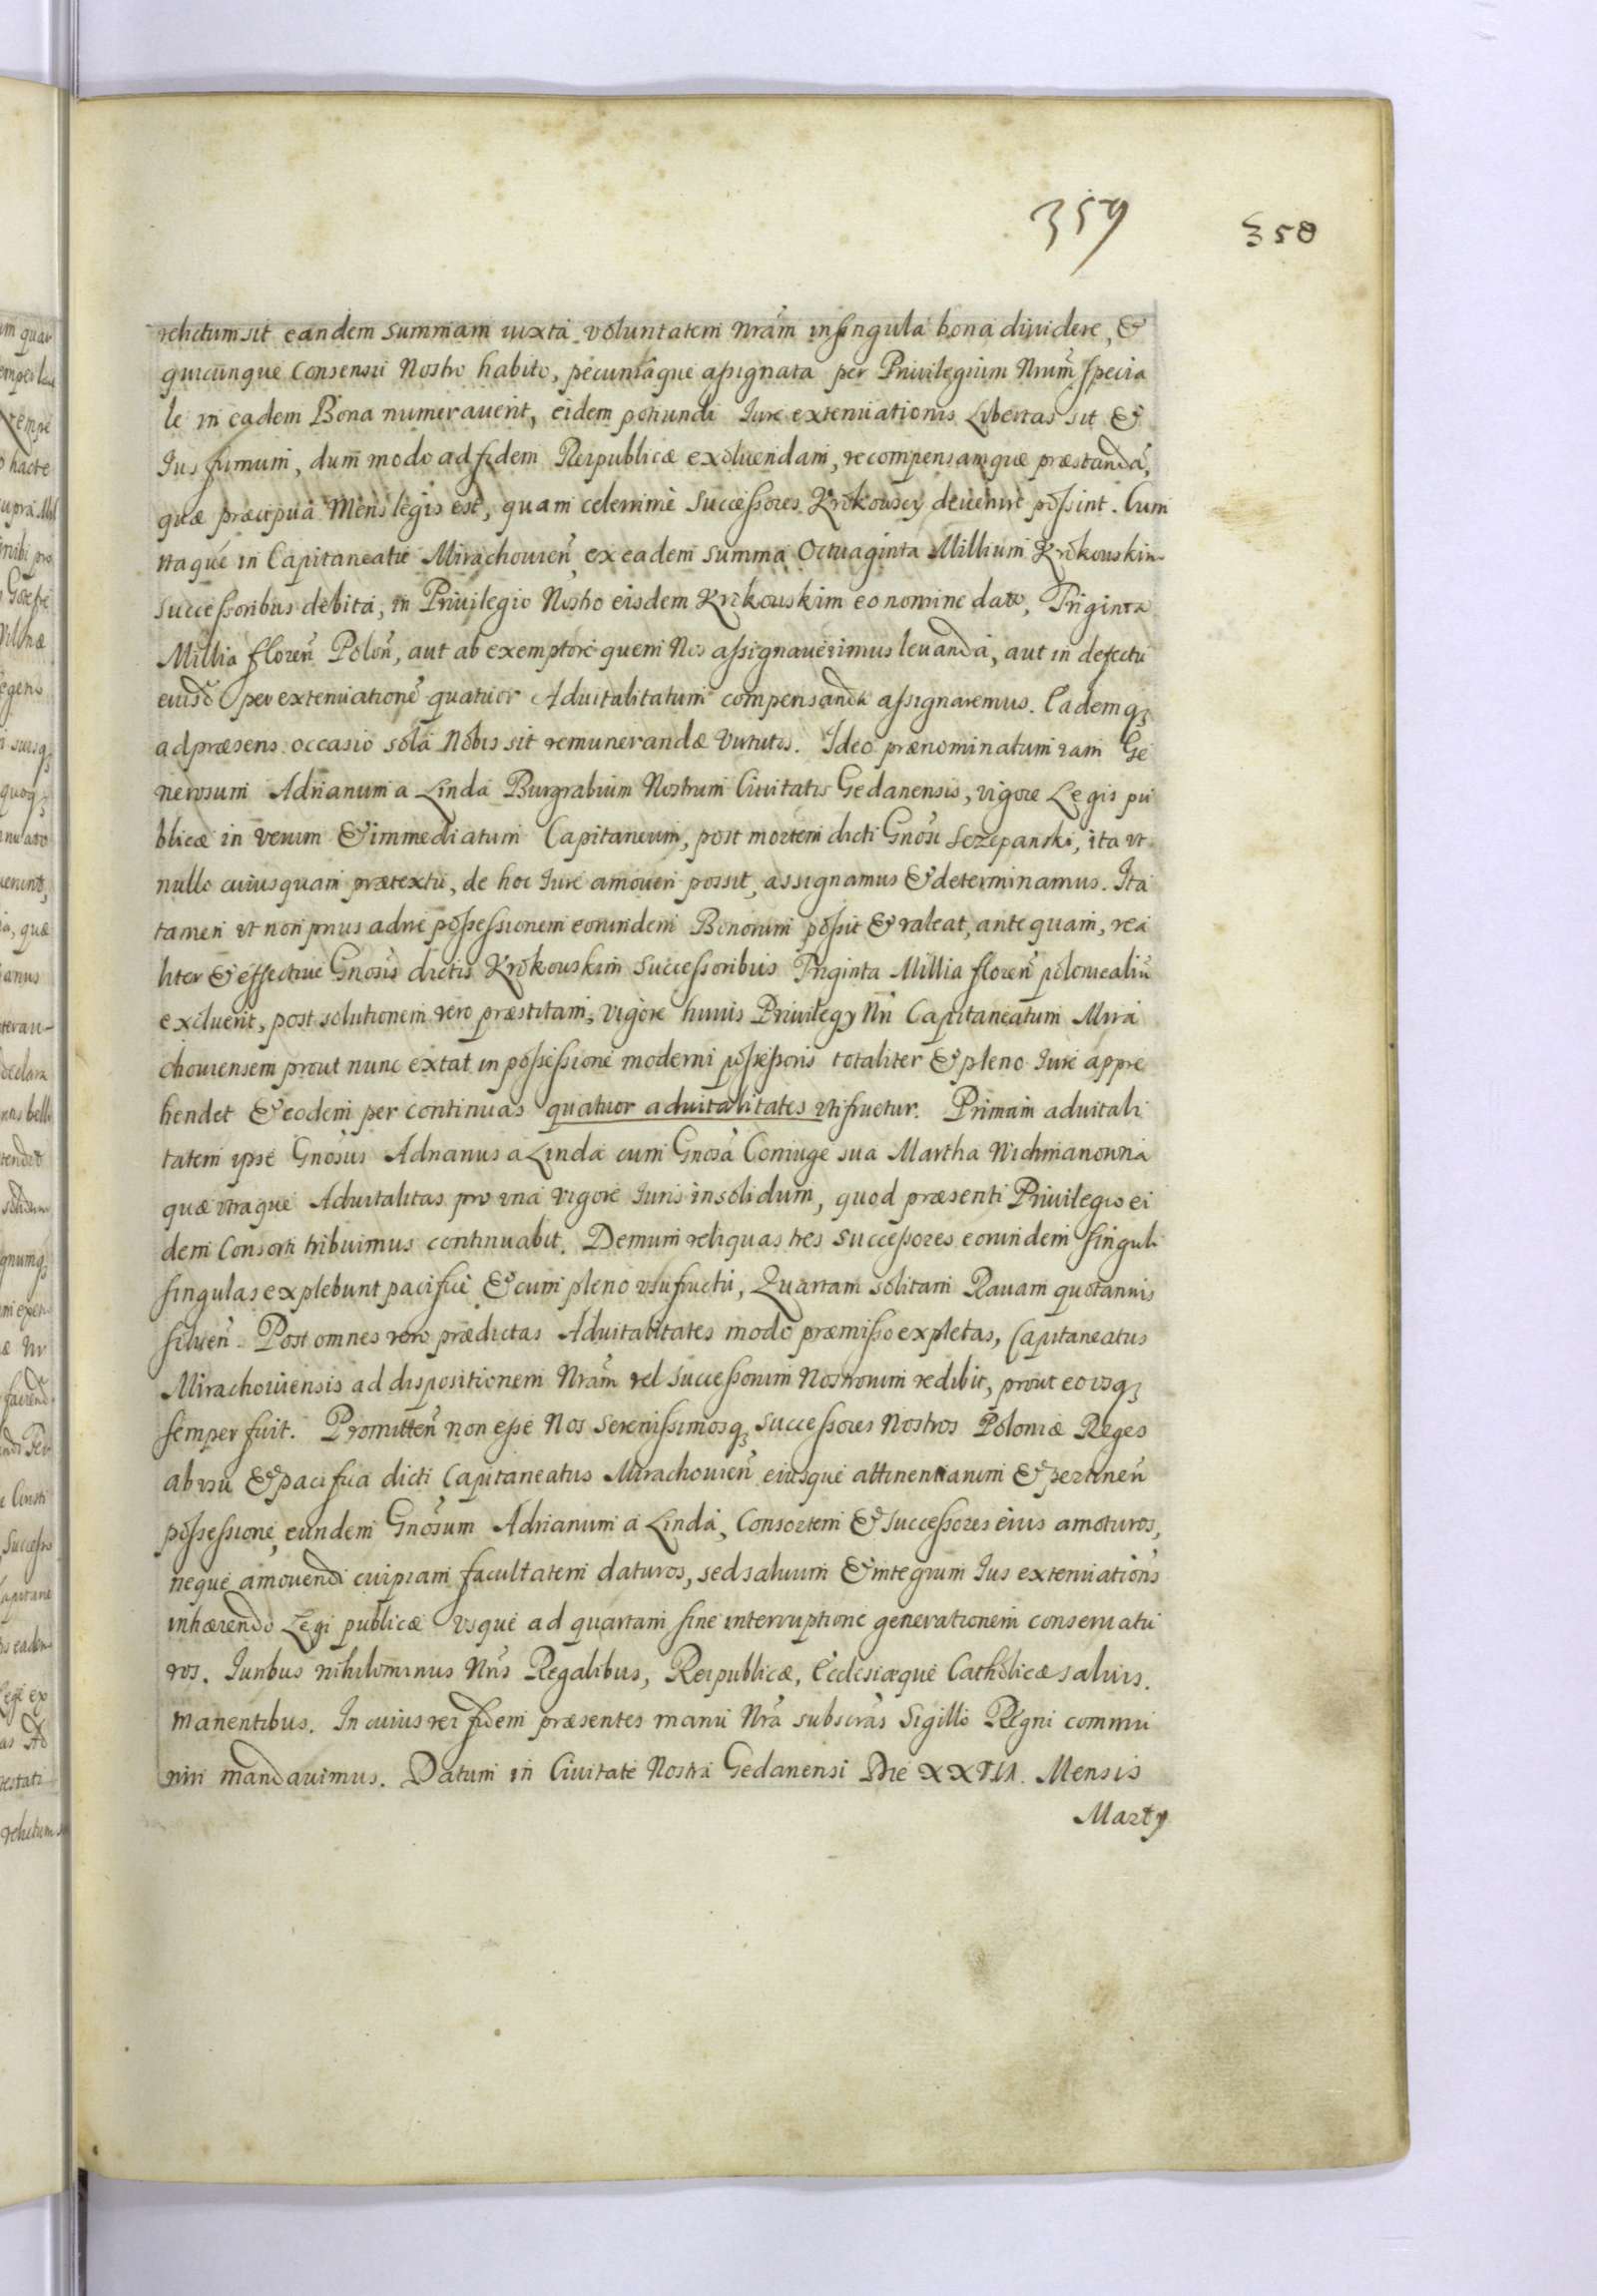 359
358
relictum sit eandem summam iuxta voluntatem Nram in singula bona diuidere, &
quicunque consensu Nostro habito, pecuniaque assignata per Priuilegium Nrum specia
le in eadem Bona numerauerit, eidem potiundi Iure extenuationis Libertas sit &
Ius firmum, dum modo ad fidem Reipublicæ exoluendam, recompensamque præstandā,
quæ præcipua Mens legis est, quam celerrime Successores Krokouscy deuenire possint. Cum
itaque in Capitaneatu Mirachouien̄ ex eadem summa Octuaginta Millium Krokouskim
successoribus debita, in Priuilegio Nostro eisdem Krokouskim eo nomine dato, Triginta
Millia floren̄ Polon̄, aut ab exemptore quem Nos assignauerimus leuanda, aut in defectu
eiusd̄ per extenuationē quatuor Aduitalitatum compensanda assignaremus. Eademq;
ad præsens occasio sola Nobis sit remunerandæ virtutis. Ideo prænominatum iam Ge
nerosum Adrianum a Linda Burgrabium Nostrum Ciuitatis Gedanensis, vigore Legis pu
blicæ in verum & immediatum Capitaneum, post mortem dicti Gnosi Sczepanski, ita vt
nullo cuiusquam prætextu, de hoc Iure amoueri possit, assignamus & determinamus. Ita
tamen vt non prius adire possessionem eorundem Bonorum possit & valeat, ante quam, rea
liter & effectiue Gnosis dictis Krokouskim Successoribus Triginta Millia floren̄ polonicaliū
exoluerit, post solutionem vero præstitam, vigore huius Priuilegy Nri Capitaneatum Mira
chouiensem prout nunc extat in possessione moderni possessoris totaliter & pleno Iure appre
hendet & eodem per continuas quatuor aduitalitates vtifruetur. Primam aduitali
tatem ipse Gnosus Adrianus a Linda cum Gnosa Coniuge sua Martha Wichmanowna
quæ vtraque Aduitalitas pro vna vigore Iuris insolidum, quod præsenti Priuilegio ei
dem Consorti tribuimus continuabit. Demum reliquas tres Successores eorundem singuli
singulas explebunt pacifice & cum pleno vsufructu, Quartam solitam Rauam quotannis
soluen̄. Post omnes vero prædictas Aduitalitates modo præmisso expletas, Capitaneatus
Mirachouiensis ad dispositionem Nram vel Successorum Nostrorum redibit, prout eo vsq;
semper fuit. Promitten̄ non esse Nos Serenissimosq; Successores Nostros Poloniæ Reges
ab vsu & pacifica dicti Capitaneatus Mirachouien̄ eiusque attinentiarum & pertinen̄
possessione, eundem Gnosum Adrianum a Linda, Consortem & Successores eius amoturos,
neque amouendi cuipiam facultatem daturos, sed saluum & integrum Ius extenuationis
inhærendo Legi publicæ vsque ad quartam sine interruptione generationem conseruatu
ros. Iuribus nihilominus Nris Regalibus, Reipublicæ, Ecclesiæque Catholicæ saluis.
manentibus. In cuius rei fidem præsentes manu Nra subscras Sigillo Regni commu
niri mandauimus. Datum in Ciuitate Nostra Gedanensi Die XXVII. Mensis
Marty